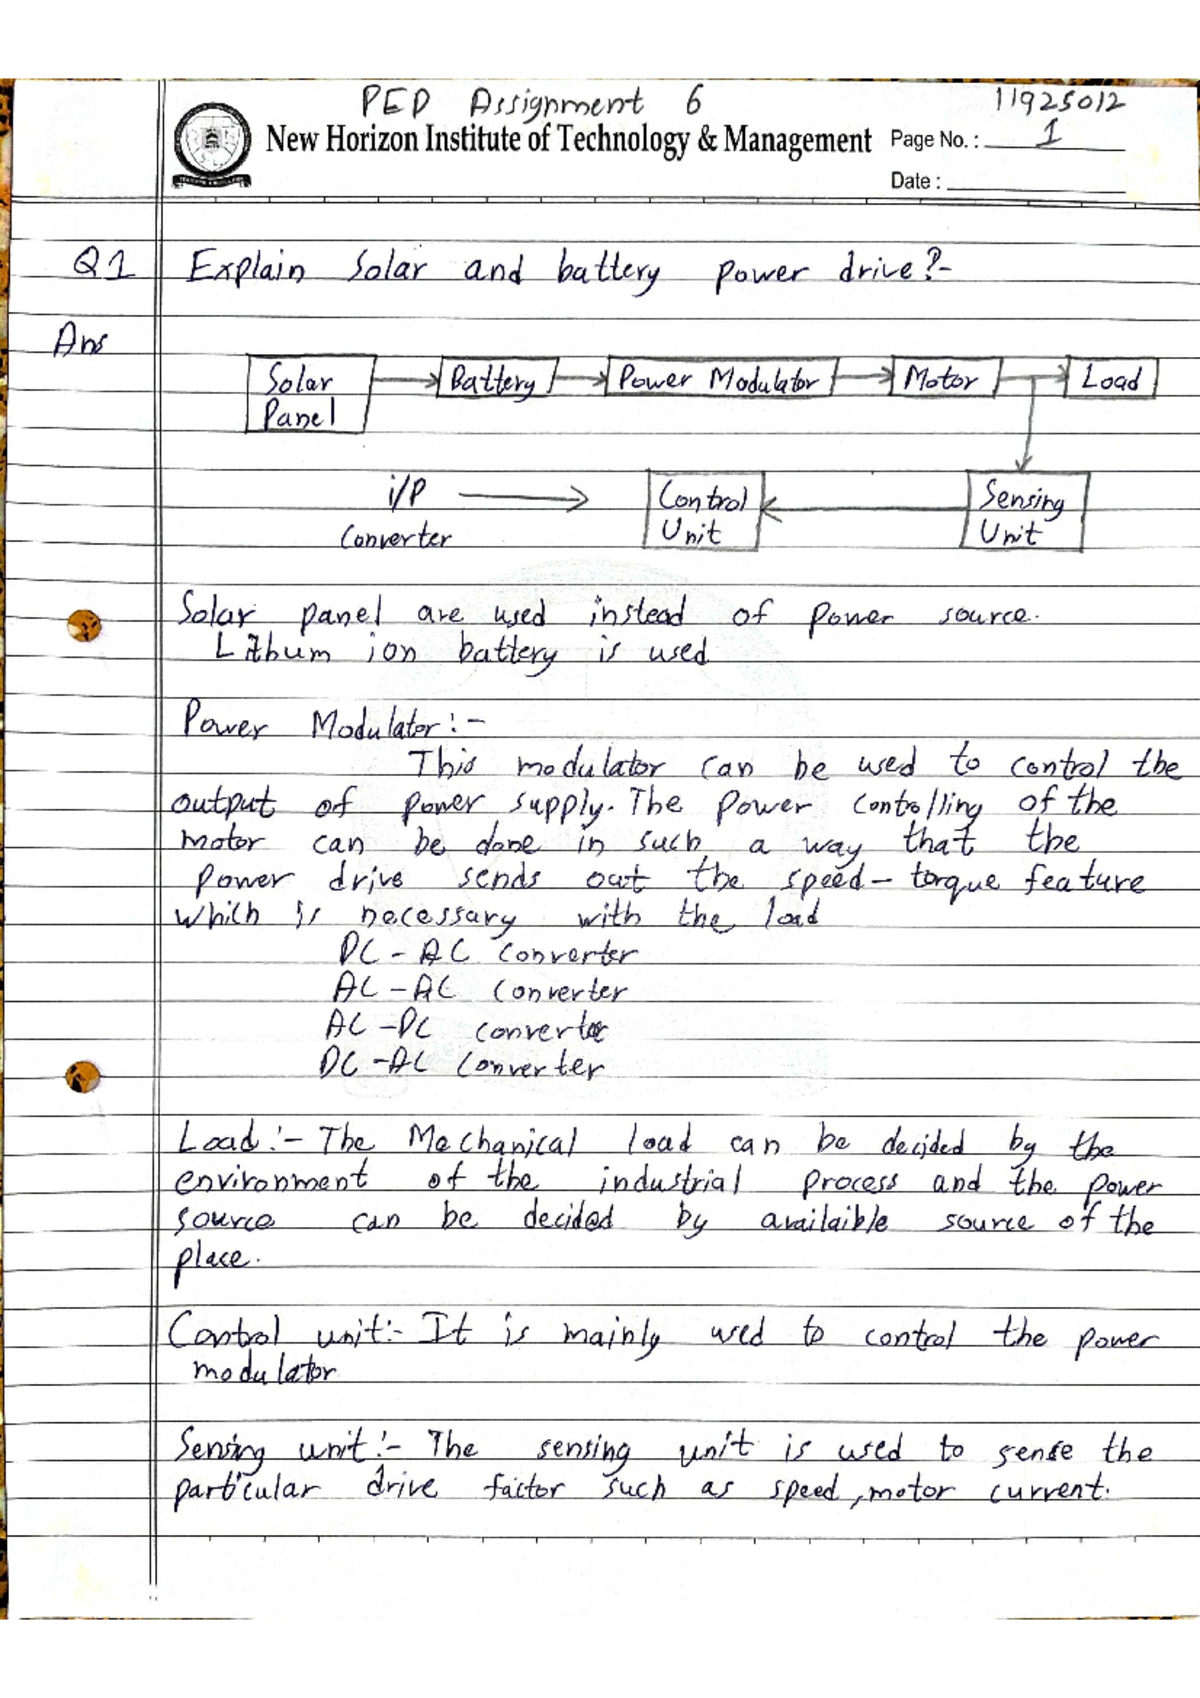 PED Assignment 6 11925012
New Horizon Institute of Technology & Management Page No. : 1
Date :
Q1 Explain Solar and battery power drive?-
Ans
Solar Panel
Battery
Power Modulator
Motor
Load
i/P
Converter
Control Unit
Sensing Unit
Solar panel are used instead of power source.
Lithum ion battery is used
Power Modulator:-
This modulator can be used to control the
output of power supply. The Power controlling of the
motor can be done in such a way that the
power drive sends out the speed-torque feature
which is necessary with the load
DC-AC Converter
AC-AC Converter
AC-DC converter
DC-AC Converter
Load:- The Mechanical load can be decided by the
environment of the industrial process and the power
source can be decided by availaible source of the
place.
Control unit:- It is mainly used to control the power
modulator
Sensing unit:- The sensing unit is used to sense the
particular drive factor such as speed, motor current.